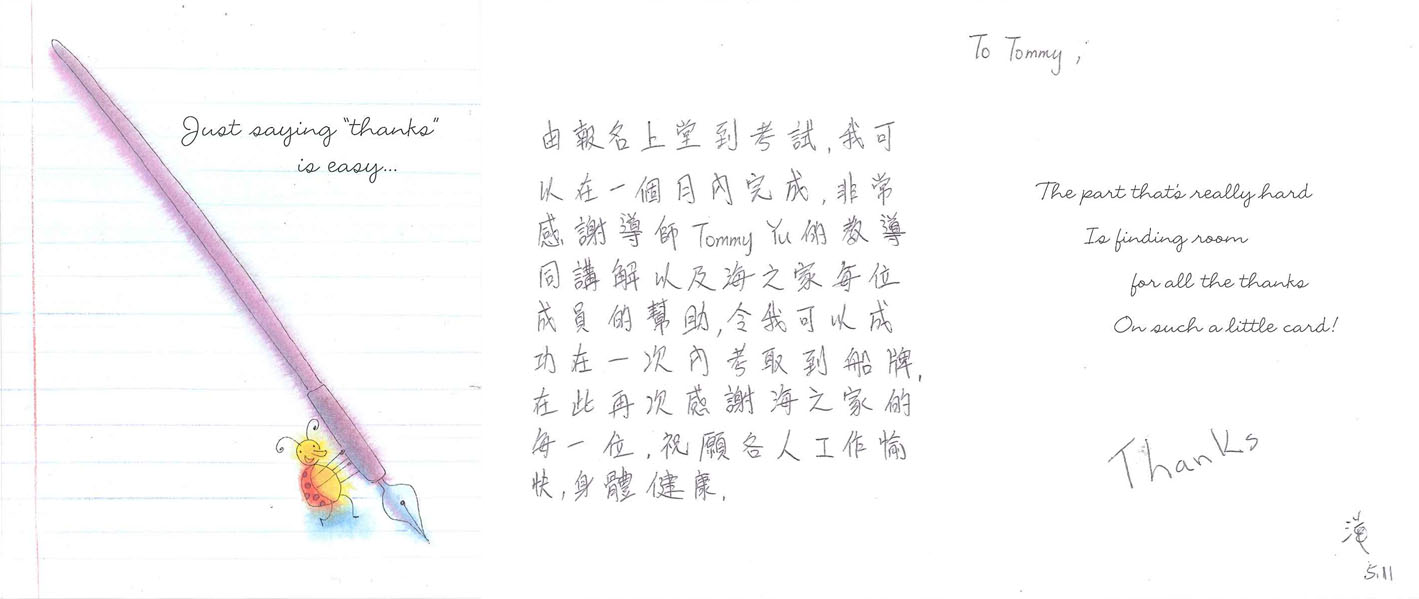 Just saying "thanks"
is easy...
由報名上堂到考試,我可
以在一個月內完成,非常
感謝導師 Tommy Yu 的教導
同講解以及海之家每位
成員的幫助,令我可以成
功在一次內考取到船牌,
在此再次感謝海之家的
每一位,祝願各人工作愉
快,身體健康.
To Tommy ;
The part that's really hard
Is finding room
for all the thanks
On such a little card!
Thanks
5.11